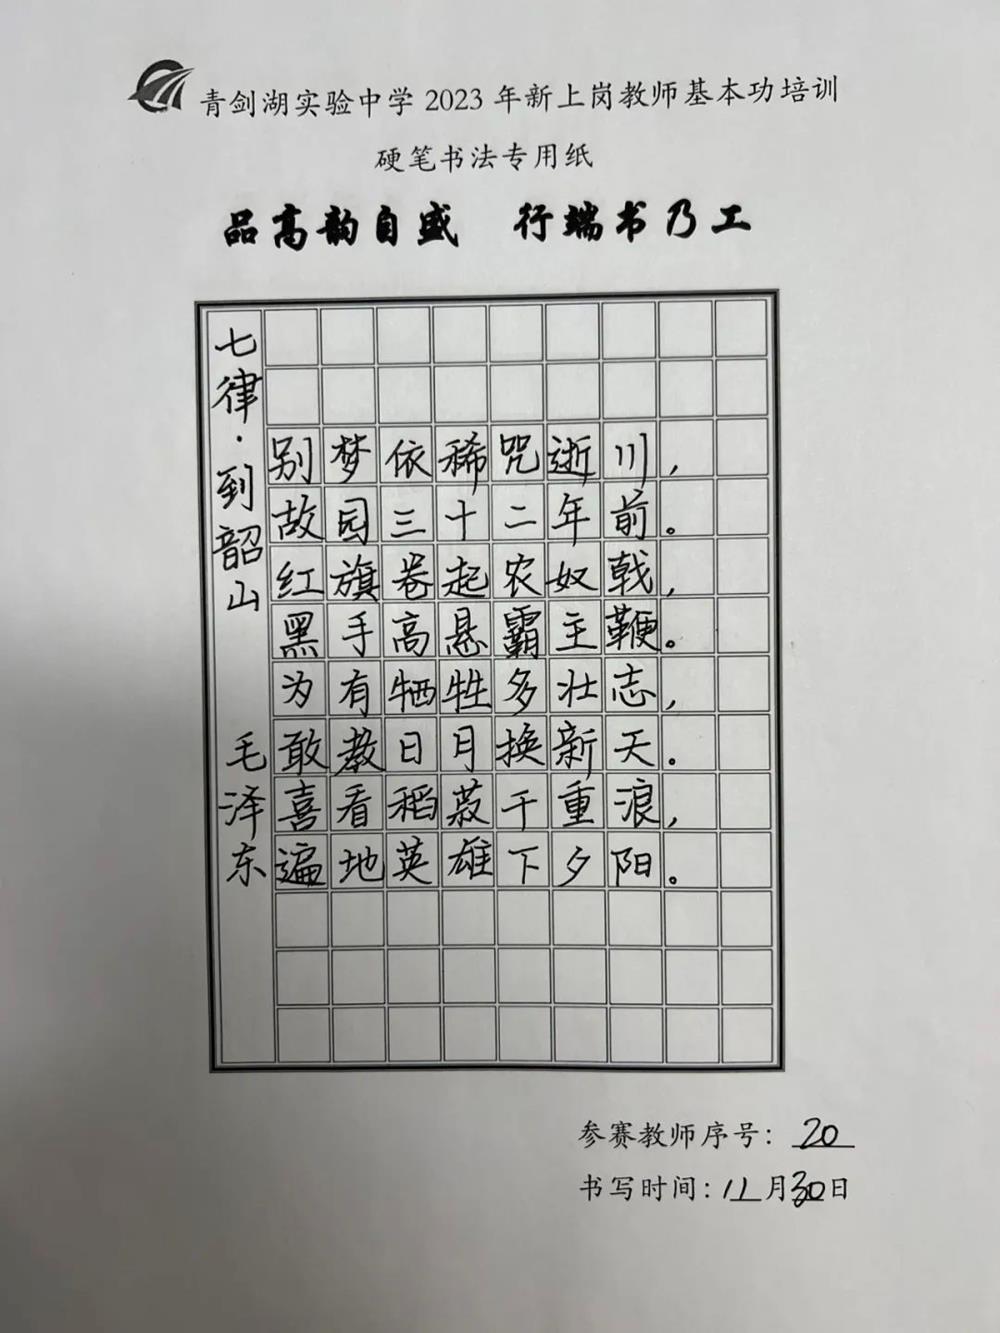 青剑湖实验中学2023年新上岗教师基本功培训
硬笔书法专用纸
品高韵自盛 行端书乃工
七律·到韶山 毛泽东
别梦依稀咒逝川，
故园三十二年前。
红旗卷起农奴戟，
黑手高悬霸主鞭。
为有牺牲多壮志，
敢教日月换新天。
喜看稻菽千重浪，
遍地英雄下夕阳。
参赛教师序号：20
书写时间：11月30日